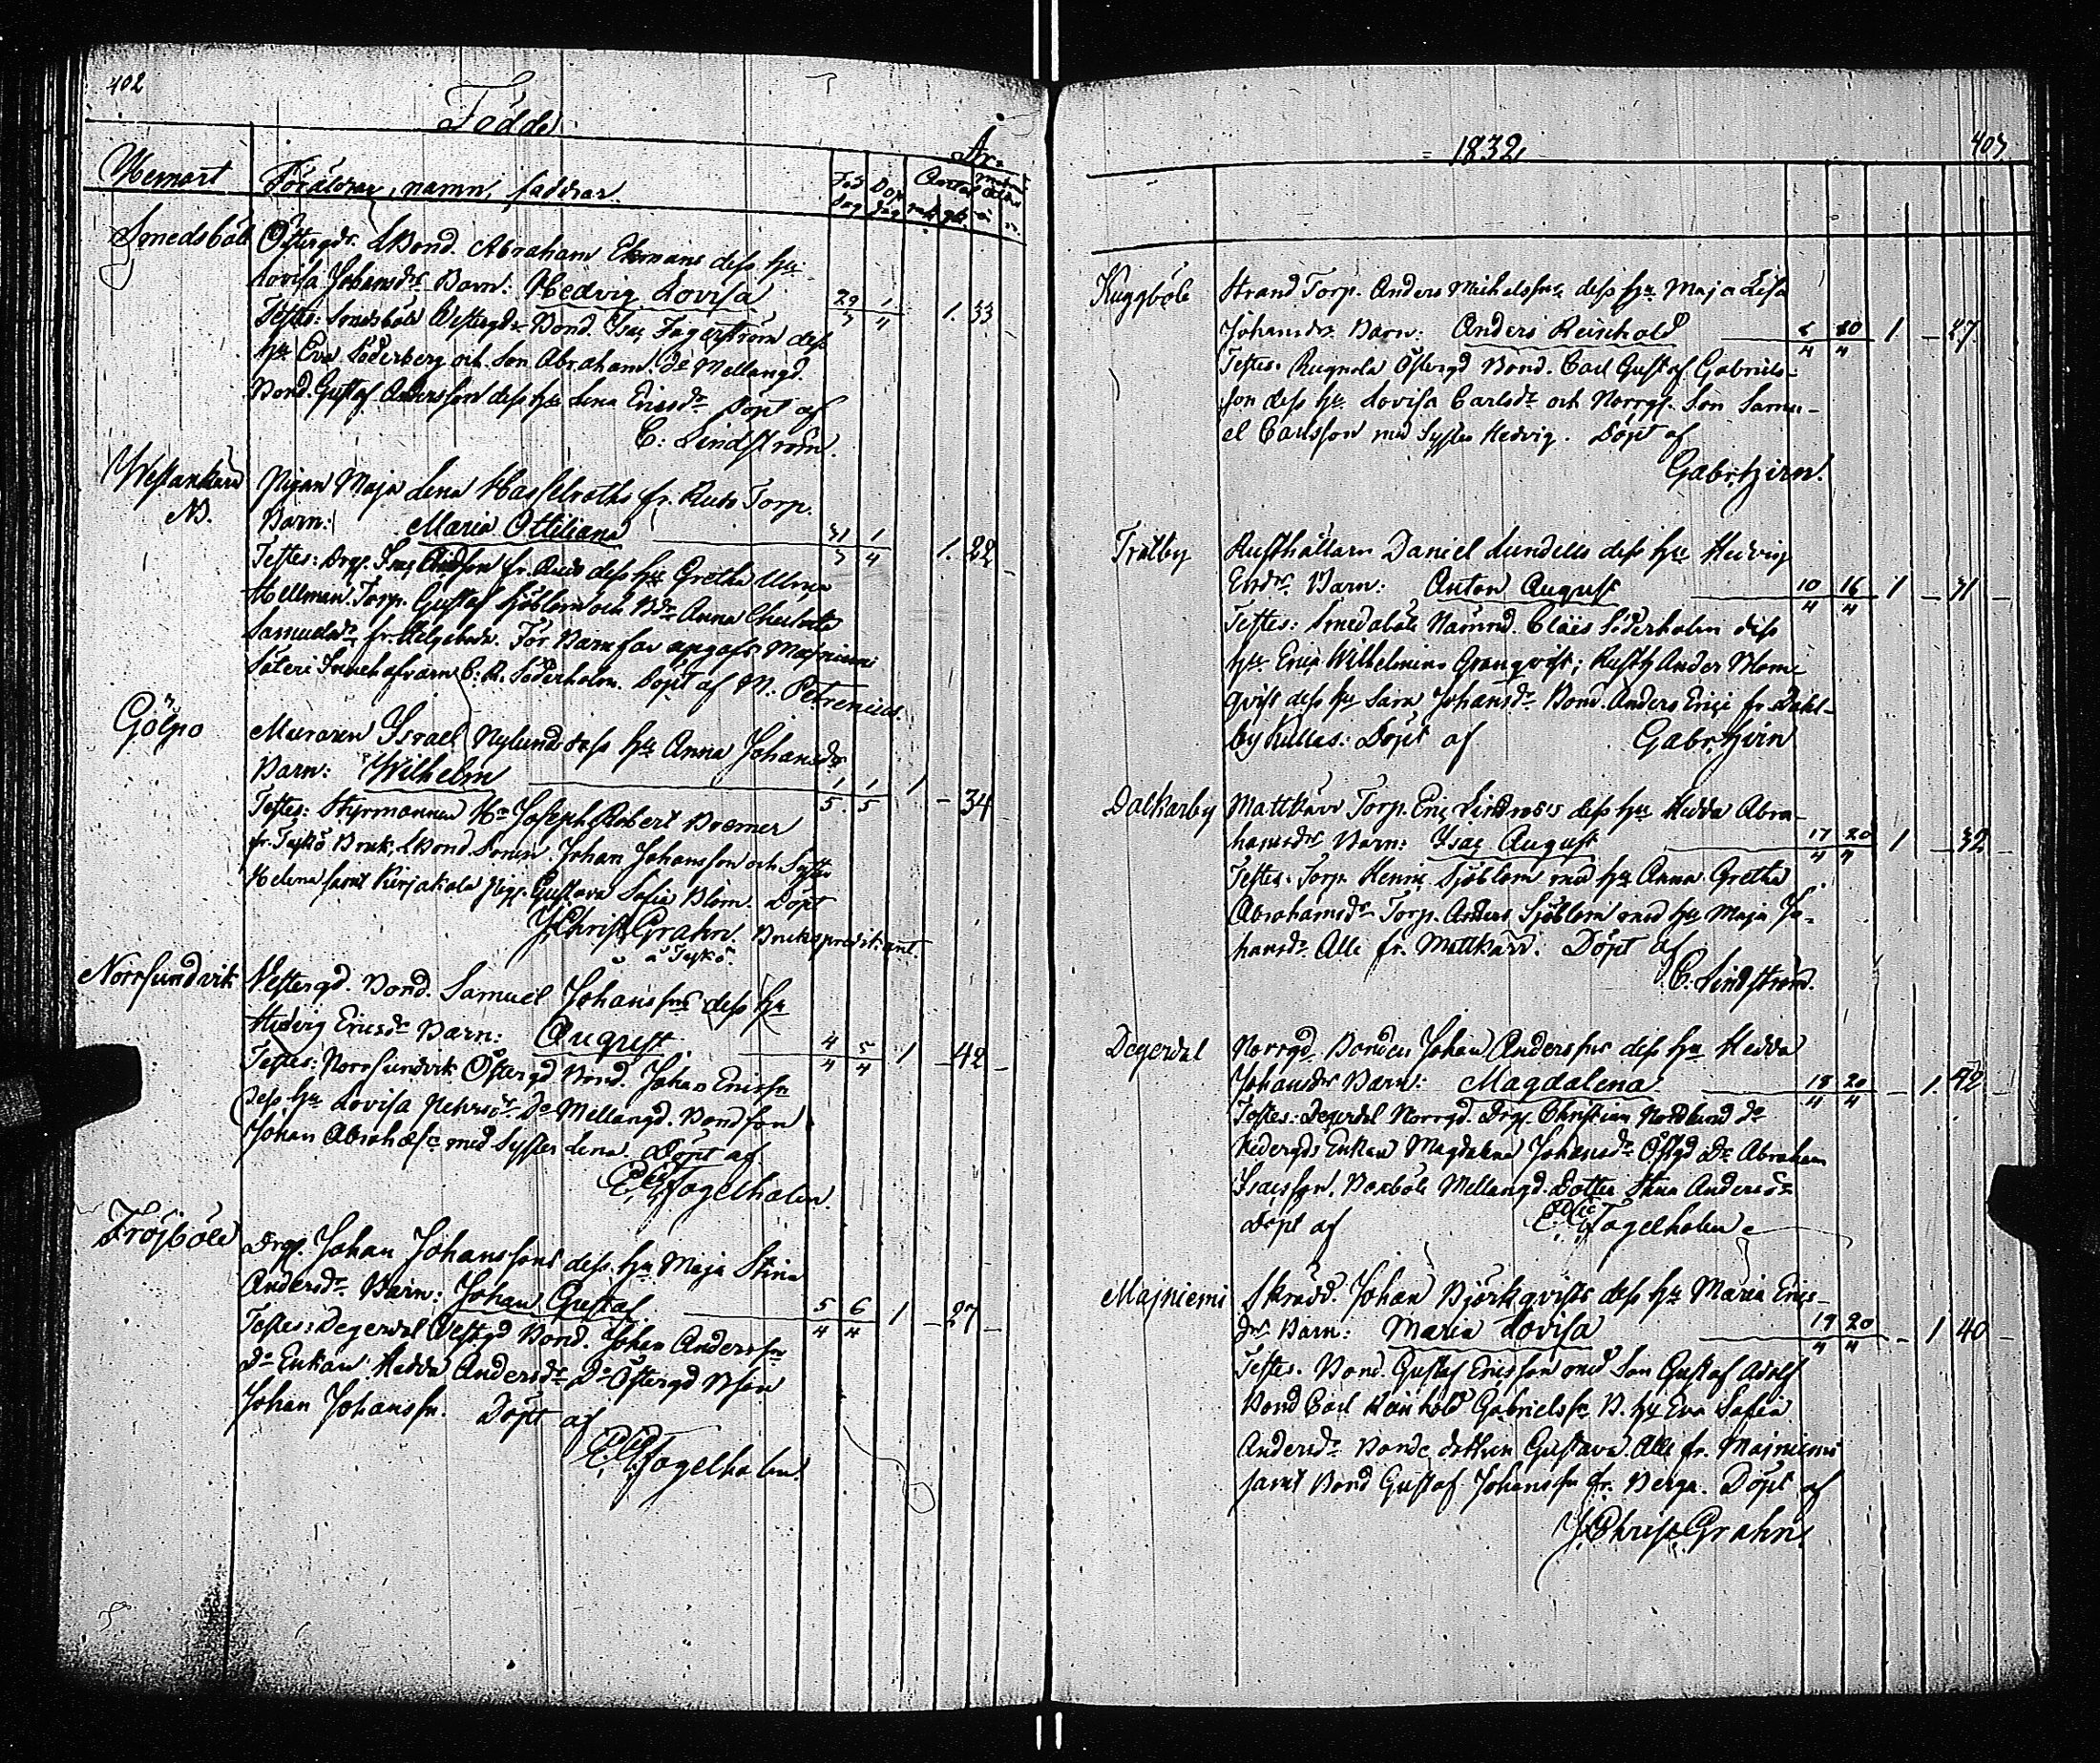 402
Födde
År
Hemort Föräldrar, namn, faddrar. Föd Döp
dag dag
Smedsböle Östergds LBond. Abraham Ekmans dess hu
Lovisa Johansdr Barn: Hedvig Lovisa 29/3 1/4 1. 33
Testes: Smedsböle Westergds Bond. Isac Fagerström dess
hu Eva Söderberg och Son Abraham. Do Mellangd.
Bond. Gustaf Andersson dess hu Lena Ericsdr Döpt af
C. Lindström.
Westankärr Pigan Maja Lena Hasselroths fr. Torp.
Barn: Maria Ottiliana 31/3 1/4 1. 22
Testes: Drg. Isac fr. dess hu Greta Ulrica
Hellman. Torp. Gustaf Sjöblom och Anna Charlotta
Samuelsdr fr. För Barnfar angafs Majniemi
Säteri Innehafvaren C. R. Söderholm. Döpt af N. Petrenius.
Gölpo Muraren Israel Nylunds dess hu Anna Johansdrs
Barn: Wilhelm 1/5 1/5 1 – 34
Testes: Styrmannen Hr Joseph Robert Bremer
fr. Tykö Bruk, LBond Sonen Johan Johansson och Syster
Helena samt Kirjakala Pig. Gustava Sofia Blom. Döpt
J Christ. Grahn, Brukspredikant
å Tykö.
Norrsundvik Vestergd. Bond. Samuel Johanssons dess hu
Hedvig Ericsdr Barn: August 4/4 5/4 1 – 42 –
Testes: Norrsundvik Östergd Bond. Johan Ericssn
dess hu Lovisa Petersdr Do Mellangd. Bondson
Johan Abrahamss med Syster Lena. Döpt af
Fogelholm.
Fröjböle Drg. Johan Johanssons dess hu Maja Stina
Andersdr Barn: Johan Gustaf 5/4 6/4 1 – 27 –
Testes: Degerdal Vestgd Bond. Johan Anderssn
Do Enkan Hedda Andersdr Do Östergd Bson
Johan Johanssn. Döpt af
Fogelholm.
1832 403
Kuggböle Strand Torp. Anders Michelssons dess hu Maja Lisa
Johansdrs Barn: Anders Reinhold /4 /4 1 – 27.
Testes: Rugnola Östergd Bond. Carl Gustaf Gabriels-
son dess hu Lovisa Carlsdr och Norrg. Son Samu-
el Carlsson med Syster Hedvig. Döpt af
Gabr. Hirn.
Trälby Rusthållarn Daniel Lundells dess hu Hedvig
Ersdrs Barn: Anton August 10/4 16/4 1 – 31 –
Testes: Smedsböle Nämnd. Claës Söderholm dess
hu Erica Wilhelmina Granqvist; Rusth Ander Blom-
qvist dess hu Sara Johansdr Bond. Anders Erici fr. Dahl-
by Kullas: Döpt af Gabr. Hirn
Dalkarby Mattkärr Torp. Eric Lindroos dess hu Hedda Abra-
hamsdrs Barn: Isac August 17/4 20/4 1 – 32 –
Testes. Torp. Henric Sjöblom med hu Anna Greta
Abrahamsdr Torp. Anders Sjöblom med hu Maja Jo-
hansdr Alle fr. Mattkärr. Döpt af
C. Lindström.
Degerdal Norrgd Bonden Johan Anderssons dess hu Hedda
Johansdrs Barn: Magdalena 18/4 20/4 – 1. 42
Testes: Degerdal Norrgd. Drg. Christian Nordlund Do
Nedergds Enkan Magdalena Johansdr Östgd Do Abraham
Isacsson, Boxböle Mellangd. Dotter Stina Andersdr
Döpt af Fogelholm
Majniemi Skrädd. Johan Björkqvists dess hu Maria Erics-
drs Barn: Maria Lovisa 19/4 20/4 – 1 40 –
Testes. Bond. Gustaf Ericsson med Son Gustaf Adolf
Bond Carl Reinhold Gabrielssn B. hu Eva Sofia
Andersdr Bonde dottren Gustava. Alle fr. Majniemi
samt Bond Gustaf Johanssn fr. Berga. Döpt af
J. Christ. Grahn.